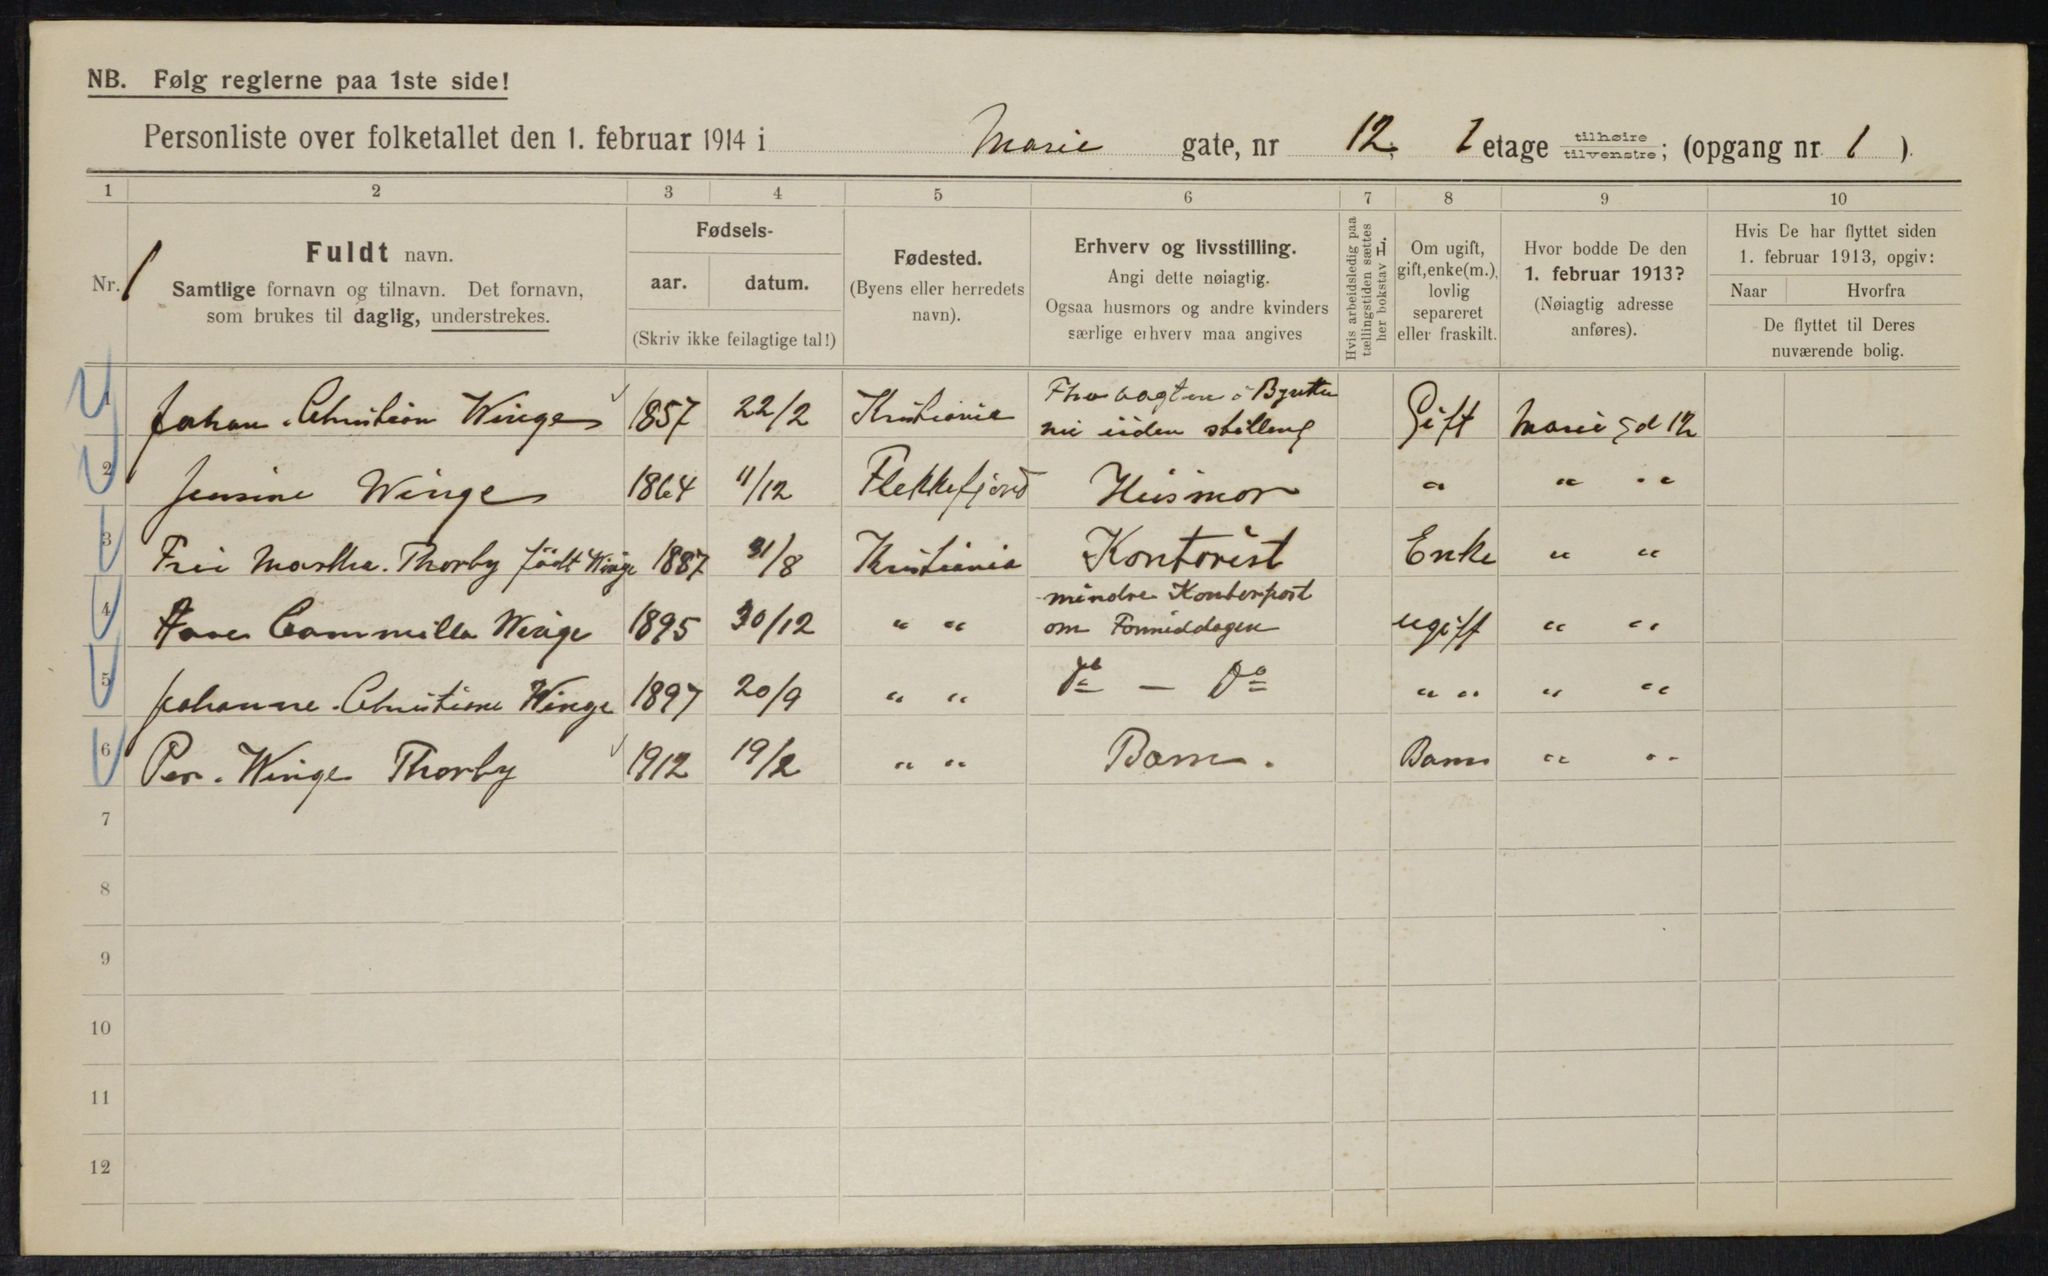 NB. Følg reglerne paa 1ste side!
Personliste over folketallet den 1. februar 1914 i Marie gate, nr 12, 1 etage tilhøire tilvenstre; (opgang nr 1).
1 2 3 4 5 6 7 8 9 10
Nr. 1
Fuldt navn.
Samtlige fornavn og tilnavn. Det fornavn,
som brukes til daglig, understrekes.
Fødsels-
aar. datum.
(Skriv ikke feilagtige tal!)
Fødested.
(Byens eller herredets
navn).
Erhverv og livsstilling.
Angi dette nøiagtig.
Ogsaa husmors og andre kvinders
særlige erhverv maa angives
Hvis arbeidsledig paa
tællingstiden sættes
her bokstav L.
Om ugift,
gift, enke(m.),
lovlig
separeret
eller fraskilt.
Hvor bodde De den
1. februar 1913?
(Nøiagtig adresse
anføres).
Hvis De har flyttet siden
1. februar 1913, opgiv:
Naar Hvorfra
De flyttet til Deres
nuværende bolig.
1 Johan Christian Winge 1857 22/2 Kristiania nu uden stilling Gift Marie gd 12
2 Jensine Winge 1864 11/12 Flekkefjord Husmor " " "
3 Martha Thorby født Winge 1887 31/8 Kristiania Kontorist Enke " "
4 Cammilla Winge 1895 30/12 " " mindre Kontorpost
om Formiddagen ugift " "
5 Johanne Christiane Winge 1897 20/9 " " do — Do " " " "
6 Per. Winge Thorby 1912 19/2 " " Barn. Barn " "
7
8
9
10
11
12